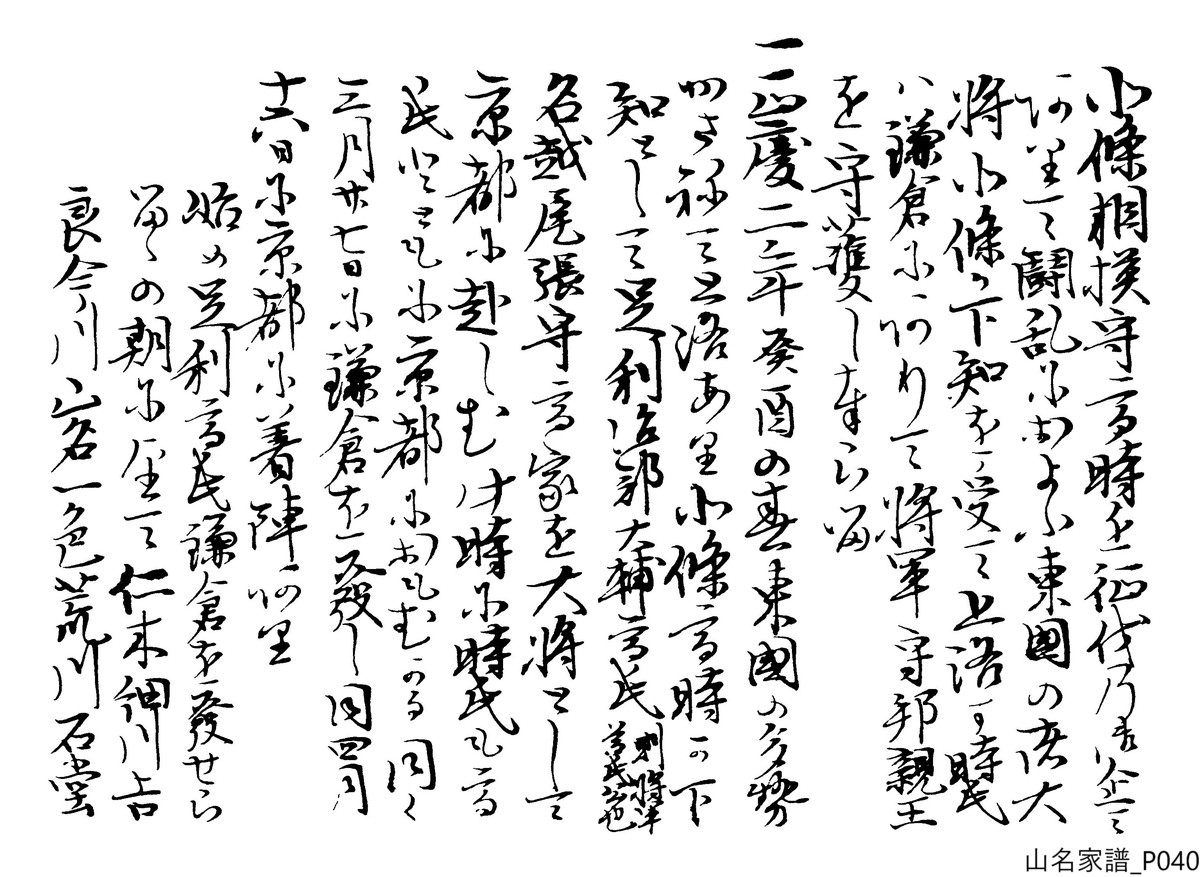 北條相摸守高時を征伐乃御企て
ありて闘乱におよふ東國の諸大
将北條か下知を受て上洛す時氏
ハ鎌倉にありて将軍守邦親王
を守護し奉らる
一正慶二年癸酉の春東國の勢
かさねて上洛あり北條高時か下
知として足利治部大輔高氏
名越尾張守高家を大将として
京都に赴しむ此時に時氏も高
氏とともに京都におもむかる同く
三月廿七日に鎌倉を發し同四月
十六日に京都に着陣あり
始め足利高氏鎌倉を發せら
るゝの期に至て仁木細川吉
良今川山名一色荒川石堂
山名家譜_P040